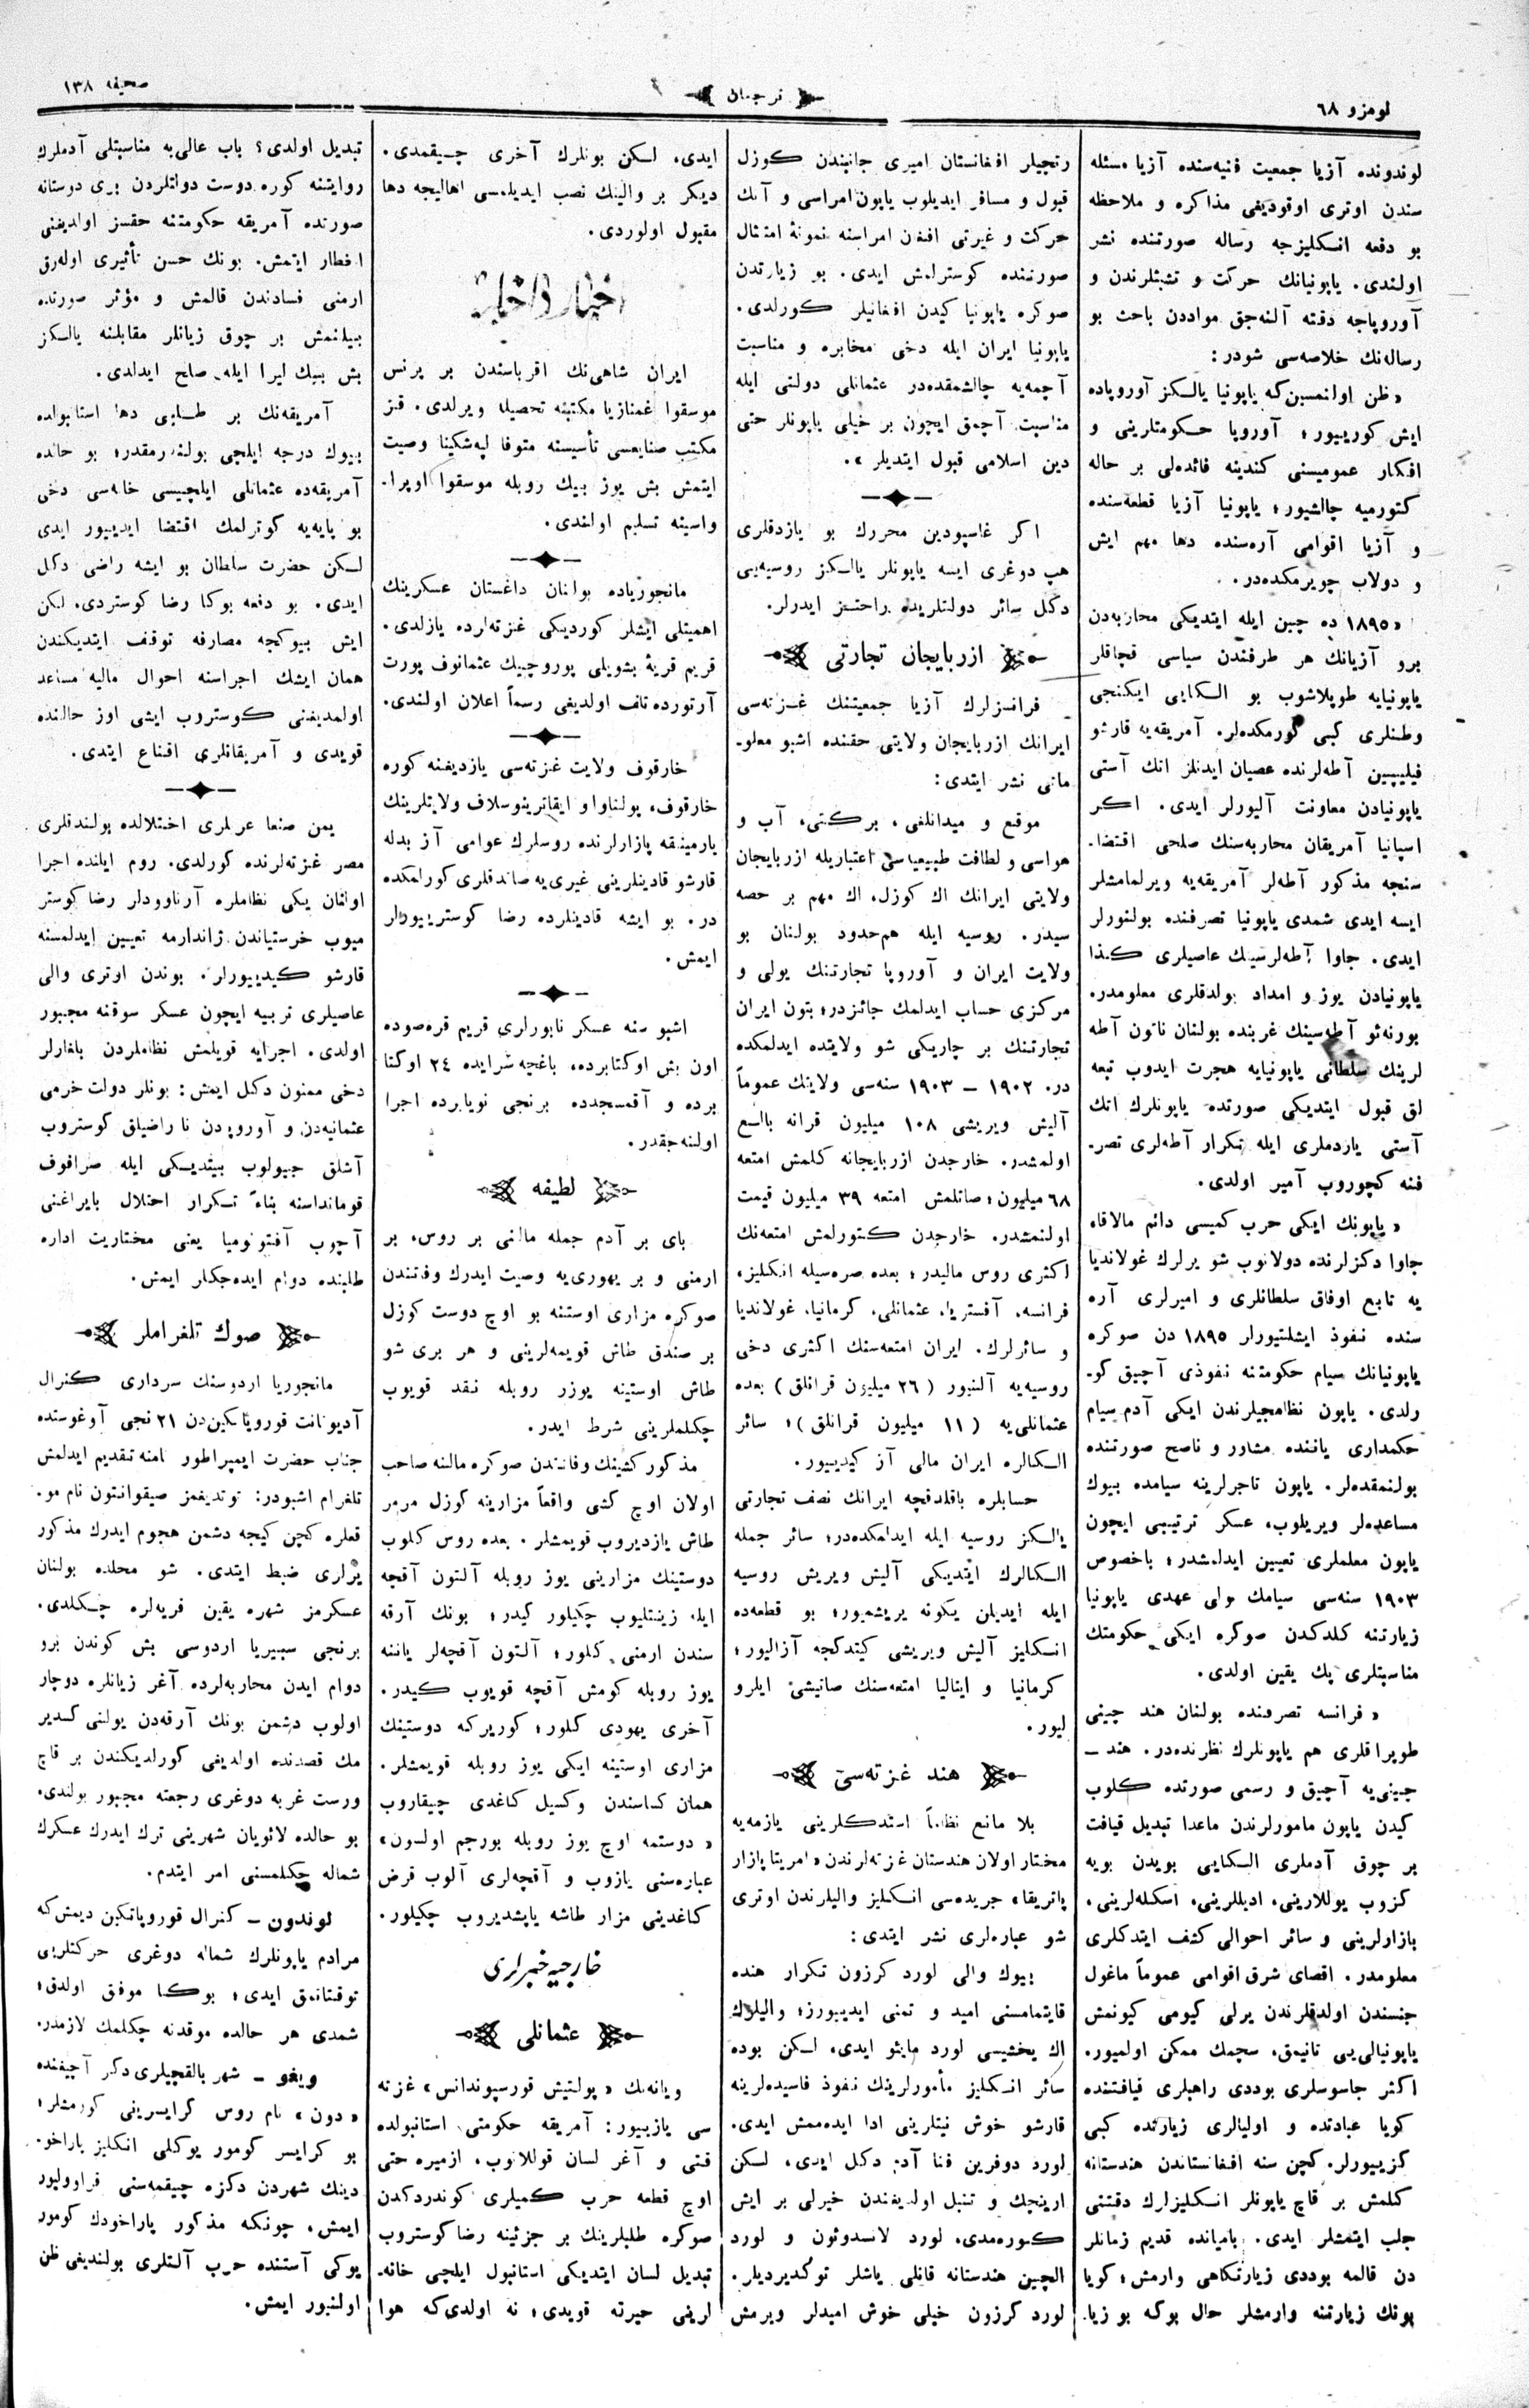 نومرو ٦٨
ترجمان
صحیفه ١٣٨
لوندونده آزیا جمعیت فنیه‌سنده آزیا مسئله
سندن اوتری اوقودیغی مذاکره و ملاحظه
بو دفعه انکلیزجه رساله صورتنده نشر
اولندی. یاپونیانك حرکت و تشبثلرندن و
آوروپاجه دقته آلنه‌جق مواددن باحث بو
رساله‌نك خلاصه‌سی شودر:
«ظن اولنمسین‌که یاپونیا یالکز آوروپاده
ایش کوریییور؛ آوروپا حکومتلرینی و
افکار عمومیسنی کندینه فائده‌لی بر حاله
کتورمیه چالشیور؛ یاپونیا آزیا قطعه‌سنده
و آزیا اقوامی آره‌سنده دها مهم ایش
و دولاب چویرمکده‌در.
«١٨٩٥ ده چین ایله ایتدیکی محاربه‌دن
برو آزیانك هر طرفندن سیاسی قچاقلر
یاپونیایه طوپلاشوب بو الکایی ایکنجی
وطنلری کبی کورمکده‌لر. آمریقه‌یه قارشو
فیلیپین آطه‌لرنده عصیان ایدنلر انك آستی
یاپونیادن معاونت آلیورلر ایدی. اکر
اسپانیا آمریقان محاربه‌سنك صلحی اقتضا-
سنجه مذکور آطه‌لر آمریقه‌یه ویرلمامشلر
ایسه ایدی شمدی یاپونیا تصرفنده بولنورلر
ایدی. جاوا آطه‌لرینك عاصیلری کذا
یاپونیادن یوز و امداد بولدقلری معلومدر.
بورنه‌ئو آطه‌سینك غربنده بولنان ناتون آطه
لرینك سلطانی یاپونیایه هجرت ایدوب تبعه
لق قبول ایتدیکی صورتده یاپونلرك انك
آستی یاردملری ایله تکرار آطه‌لری تصر-
فنه کچوروب آمیر اولدی.
«یاپونك ایکی حرب کمیسی دائم مالاقا،
جاوا دکزلرنده دولانوب شو یرلرك غولاندیا
یه تابع اوفاق سلطانلری و امیرلری آره
سنده نفوذ ایشلتیورلر ١٨٩٥ دن صوکره
یاپونیانك سیام حکومتنه نفوذی آچیق کو-
رلدی. یاپون نظامجیلرندن ایکی آدم سیام
حکمداری یاننده مشاور و ناصح صورتنده
بولنمقده‌لر. یاپون تاجرلرینه سیامده بیوك
مساعده‌لر ویریلوب، عسکر ترتیبی ایچون
یاپون معلملری تعیین ایدلمشدر؛ باخصوص
١٩٠٣ سنه‌سی سیامك ولی عهدی یاپونیا
زیارتنه کلدکدن صوکره ایکی حکومتك
مناسبتلری پك یقین اولدی.
«فرانسه تصرفنده بولنان هند چینی
طوپراقلری هم یاپونلرك نظرنده‌در. هند –
چینی‌یه آچیق و رسمی صورتده کلوب
کیدن یاپون مامورلرندن ماعدا تبدیل قیافت
بر چوق آدملری الکایی بویدن بویه
کزوب یوللارینی، ادیللرینی، اسکله‌لرینی،
بازارلرینی و سائر احوالی کشف ایتدکلری
معلومدر. اقصای شرق اقوامی عموماً ماغول
جنسندن اولدقلرندن یرلی کیومی کیونمش
یاپونیالی‌یی تانیمق، سچمك ممکن اولمیور.
اکثر جاسوسلری بوددی راهبلری قیافتنده
کویا عبادتده و اولیالری زیارتده کبی
کزییورلر. کچن سنه افغانستاندن هندستانه
کلمش بر قاچ یاپونلر انکلیزلرك دقتنی
جلب ایتمشلر ایدی. بامیانده قدیم زمانلر
دن قالمه بوددی زیارتکاهی وارمش؛ کویا
بونك زیارتنه وارمشلر حال بوکه بو زیا-
رتجیلر افغانستان امیری جانبندن کوزل
قبول و مسافر ایدیلوب یاپون امراسی و آنك
حرکت و غیرتی افغان امراسنه نمونهٔ امتثال
صورتنده کوسترلمش ایدی. بو زیارتدن
صوکره یاپونیا کیدن افغانیلر کورلدی.
یاپونیا ایران ایله دخی مخابره و مناسبت
آچمه‌یه چالشمقده‌در عثمانلی دولتی ایله
مناسبت آچمق ایچون بر خیلی یاپونلر حتی
دین اسلامی قبول ایتدیلر».
اکر غاسپودین محررك بو یازدقلری
هپ دوغری ایسه یاپونلر یالکز روسیه‌یی
دکل سائر دولتلریده راحتسز ایدرلر.
ازربایجان تجارتی
فرانسزلرك آزیا جمعیتنك غزته‌سی
ایرانك ازربایجان ولایتی حقنده اشبو معلو-
ماتی نشر ایتدی:
موقع و میدانلغی، برکتی، آب و
هواسی و لطافت طبیعیه‌سی اعتباریله ازربایجان
ولایتی ایرانك اك کوزل، اك مهم بر حصه
سیدر. روسیه ایله هم‌حدود بولنان بو
ولایت ایران و آوروپا تجارتنك یولی و
مرکزی حساب ایدلمك جائزدر؛ بتون ایران
تجارتنك بر چاریکی شو ولایتده ایدلمکده
در. ١٩٠٢ – ١٩٠٣ سنه‌سی ولاینك عموماً
آلیش ویریشی ١٠٨ میلیون قرانه بالغ
اولمشدر. خارجدن ازربایجانه کلمش امتعه
٦٨ میلیون؛ صاتلمش امتعه ٣٩ میلیون قیمت
اولنمشدر. خارجدن کتورلمش امتعه‌نك
اکثری روس مالیدر؛ بعده صره‌سیله انکلیز،
فرانسه، آفستریا، عثمانلی، کرمانیا، غولاندیا
و سائرلرك. ایران امتعه‌سنك اکثری دخی
روسیه‌یه آلنیور (٢٦ میلیون قرانلق) بعده
عثمانلی‌یه (١١ میلیون قرانلق)؛ سائر
الکالره ایران مالی آز کیدییور.
حسابلره باقلدقجه ایرانك نصف تجارتی
یالکز روسیه ایله ایدلمکده‌در؛ سائر جمله
الکالرك ایتدیکی آلیش ویریش روسیه
ایله ایدیلن یکونه یریشمیور؛ بو قطعه‌ده
انکلیز آلیش ویریشی کیتدکجه آزالیور؛
کرمانیا و ایتالیا امتعه‌سنك صاتیشی ایلرو
لیور.
هند غزته‌سی
بلا مانع نظاماً استدکلرینی یازمه‌یه
مختار اولان هندستان غزته‌لرندن «امریتا پازار
پاتریقا» جریده‌سی انکلیز والیلرندن اوتری
شو عباره‌لری نشر ایتدی:
بیوك والی لورد کرزون تکرار هنده
قایتمامسنی امید و تمنی ایدییورز؛ والیلرك
اك یخشیسی لورد مایئو ایدی، لکن بوده
سائر انکلیز مأمورلرینك نفوذ فاسیده‌لرینه
قارشو خوش نیتلرینی ادا ایده‌ممش ایدی.
لورد دوفرین فنا آدم دکل ایدی، لکن
ارینجك و تنبل اولدیغندن خیرلی بر ایش
کوره‌مدی. لورد لانسدوئون و لورد
الچین هندستانه قانلی یاشلر توکدیردیلر.
لورد کرزون خیلی خوش امیدلر ویرمش
ایدی، لکن بونلرك آخری چیقمدی.
دیکر بر والینك نصب ایدیلمسی اهالیجه دها
مقبول اولوردی.
اخبار داخلیه
ایران شاهی‌نك اقرباسندن بر پرنس
موسقوا غمنازیا مکتبنه تحصیله ویرلدی. قیز
مکتب صنایعسی تأسیسنه متوفا لپه‌شکینا وصیت
ایتمش بش یوز بیك روبله موسقوا اوپرا-
واسینه تسلیم اولندی.
مانجوریاده بولنان داغستان عسکرینك
اهمیتلی ایشلر کوردیکی غزته‌لرده یازلدی.
قریم قریهٔ بشویلی پوروچیك عثمانوف پورت
آرتورده تلف اولدیغی رسماً اعلان اولندی.
خارقوف ولایت غزته‌سی یازدیغنه کوره
خارقوف، پولتاوا و ایقاترینوسلاف ولایتلرینك
یارمینقه پازارلرنده روسلرك عوامی آز بدله
قارشو قادینلرینی غیری‌یه صاتدقلری کورلمکده
در. بو ایشه قادینلرده رضا کوسترییورلر
ایمش.
اشبو سنه عسکر نابورلری قریم قره‌صوده
اون بش اوکتابرده، باغچه‌سرایده ٢٤ اوکتا
برده و آقمسجدده برنجی نویابرده اجرا
اولنه‌جقدر.
لطیفه
بای بر آدم جمله مالنی بر روس، بر
ارمنی و بر یهودی‌یه وصیت ایدرك وفاتندن
صوکره مزاری اوستنه بو اوچ دوست کوزل
بر صندق طاش قویمه‌لرینی و هر بری شو
طاش اوستینه یوزر روبله نقد قویوب
چکلملرینی شرط ایدر.
مذکور کشینك وفاتندن صوکره مالنه صاحب
اولان اوچ کشی واقعاً مزارینه کوزل مرمر
طاش یازدیروب قویمشلر. بعده روس کلوب
دوستینك مزارینی یوز روبله آلتون آقچه
ایله زینتلیوب چکیلور کیدر؛ بونك آرقه
سندن ارمنی کلور؛ آلتون آقچه‌لر یاننه
یوز روبله کومش آقچه قویوب کیدر.
آخری یهودی کلور؛ کوریرکه دوستینك
مزاری اوستینه ایکی یوز روبله قویمشلر.
همان کساسندن وکسیل کاغدی چیقاروب
«دوستمه اوچ یوز روبله بورجم اولسون»
عباره‌سنی یازوب و آقچه‌لری آلوب قرض
کاغدینی مزار طاشه یاپشدیروب چکیلور.
خارجیه خبرلری
عثمانلی
ویانه‌نك «پولتیش قورسپوندانس» غزته
سی یازییور: آمریقه حکومتی استانبولده
قتی و آغر لسان قوللانوب، ازمیره حتی
اوچ قطعه حرب کمیلری کوندردکدن
صوکره طلبلرینك بر جزئینه رضا کوستروب
تبدیل لسان ایتدیکی استانبول ایلچی خانه-
لرینی حیرته قویدی؛ نه اولدی‌که هوا
تبدیل اولدی؟ باب عالی‌یه مناسبتلی آدملرك
روایتنه کوره دوست دولتلردن بری دوستانه
صورتده آمریقه حکومتنه حقسز اولدیغنی
اخطار ایتمش. بونك حسن تأثیری اوله‌رق
ارمنی فسادندن قالمش و مؤثر صورتده
بیلنمش بر چوق زیانلر مقابلنه یالکز
بش بیك لیرا ایله صلح ایدلدی.
آمریقه‌نك بر طلبی دها استانبولده
بیوك درجه ایلچی بولندرمقدر؛ بو حالده
آمریقه‌ده عثمانلی ایلچیسی خانه‌سی دخی
بو پایه‌یه کوترلمك اقتضا ایدییور ایدی
لکن حضرت سلطان بو ایشه راضی دکل
ایدی. بو دفعه بوکا رضا کوستردی. لکن
ایش بیوکجه مصارفه توقف ایتدیکندن
همان ایشك اجراسنه احوال مالیه مساعد
اولمدیغنی کوستروب ایشی اوز حالنده
قویدی و آمریقانلری اقناع ایتدی.
یمن صنعا عربلری اختلالده بولندقلری
مصر غزته‌لرنده کورلدی. روم ایلنده اجرا
اولنان یکی نظاملره آرناوودلر رضا کوستر
میوب خرستیاندن ژاندارمه تعیین ایدلمسنه
قارشو کیدییورلر. بوندن اوتری والی
عاصیلری تربیه ایچون عسکر سوقنه مجبور
اولدی. اجرایه قویلمش نظاملردن بلغارلر
دخی ممنون دکل ایمش: بونلر دولت خرمی
عثمانیه‌دن و آوروپه‌دن نا راضیلق کوستروب
آشلق جییولوب بیتدیکی ایله صرافوف
قومانداسنه بناءً تکرار اختلال بایراغنی
آچوب آفتونومیا یعنی مختاریت اداره
طلبنده دوام ایده‌جکلر ایمش.
صوك تلغراملر
مانجوریا اردوسنك سرداری کنرال
آدیوتانت قوروپاتکین‌دن ٢١ نجی آوغوستده
جناب حضرت ایمپراطور نامنه تقدیم ایدلمش
تلغرام اشبودر: توتدیغمز صیقوانتون نام مو-
قعلره کچن کیجه دشمن هجوم ایدرك مذکور
یرلری ضبط ایتدی. شو محلده بولنان
عسکرمز شهره یقین قریه‌لره چکلدی.
برنجی سیبیریا اردوسی بش کوندن برو
دوام ایدن محاربه‌لرده آغر زیانلره دوچار
اولوب دشمن بونك آرقه‌دن یولنی کسدیر
مك قصدنده اولدیغی کورلدیکندن بر قاچ
ورست غربه دوغری رجعته مجبور بولندی.
بو حالده لائویان شهرینی ترك ایدرك عسکرك
شماله چکلمسنی امر ایتدم.
لوندون – کنرال قوروپاتکین دیمش‌که
مرادم یاپونلرك شماله دوغری حرکتلرینی
توقتاتمق ایدی؛ بوکا موفق اولدق؛
شمدی هر حالده موقدنه چکلمك لازمدر.
ویغو – شهر بالقچیلری دکز آچیغنده
«دون» نام روس کرایسرینی کورمشلر؛
بو کرایسر کومور یوکلی انکلیز پاراخو-
دینك شهردن دکزه چیقمه‌سنی قراوولیور
ایمش. چونکه مذکور پاراخودك کومور
یوکی آستنده حرب آلتلری بولندیغی ظن
اولنیور ایمش.